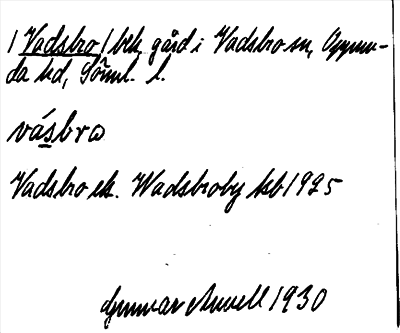 / Vadsbro / bek. gård i Vadsbro sn, Oppun-
da hd, Söml. l.
vásbro
Vadsbro ek. Wadsbroby kb 1925
Gunvar 1930